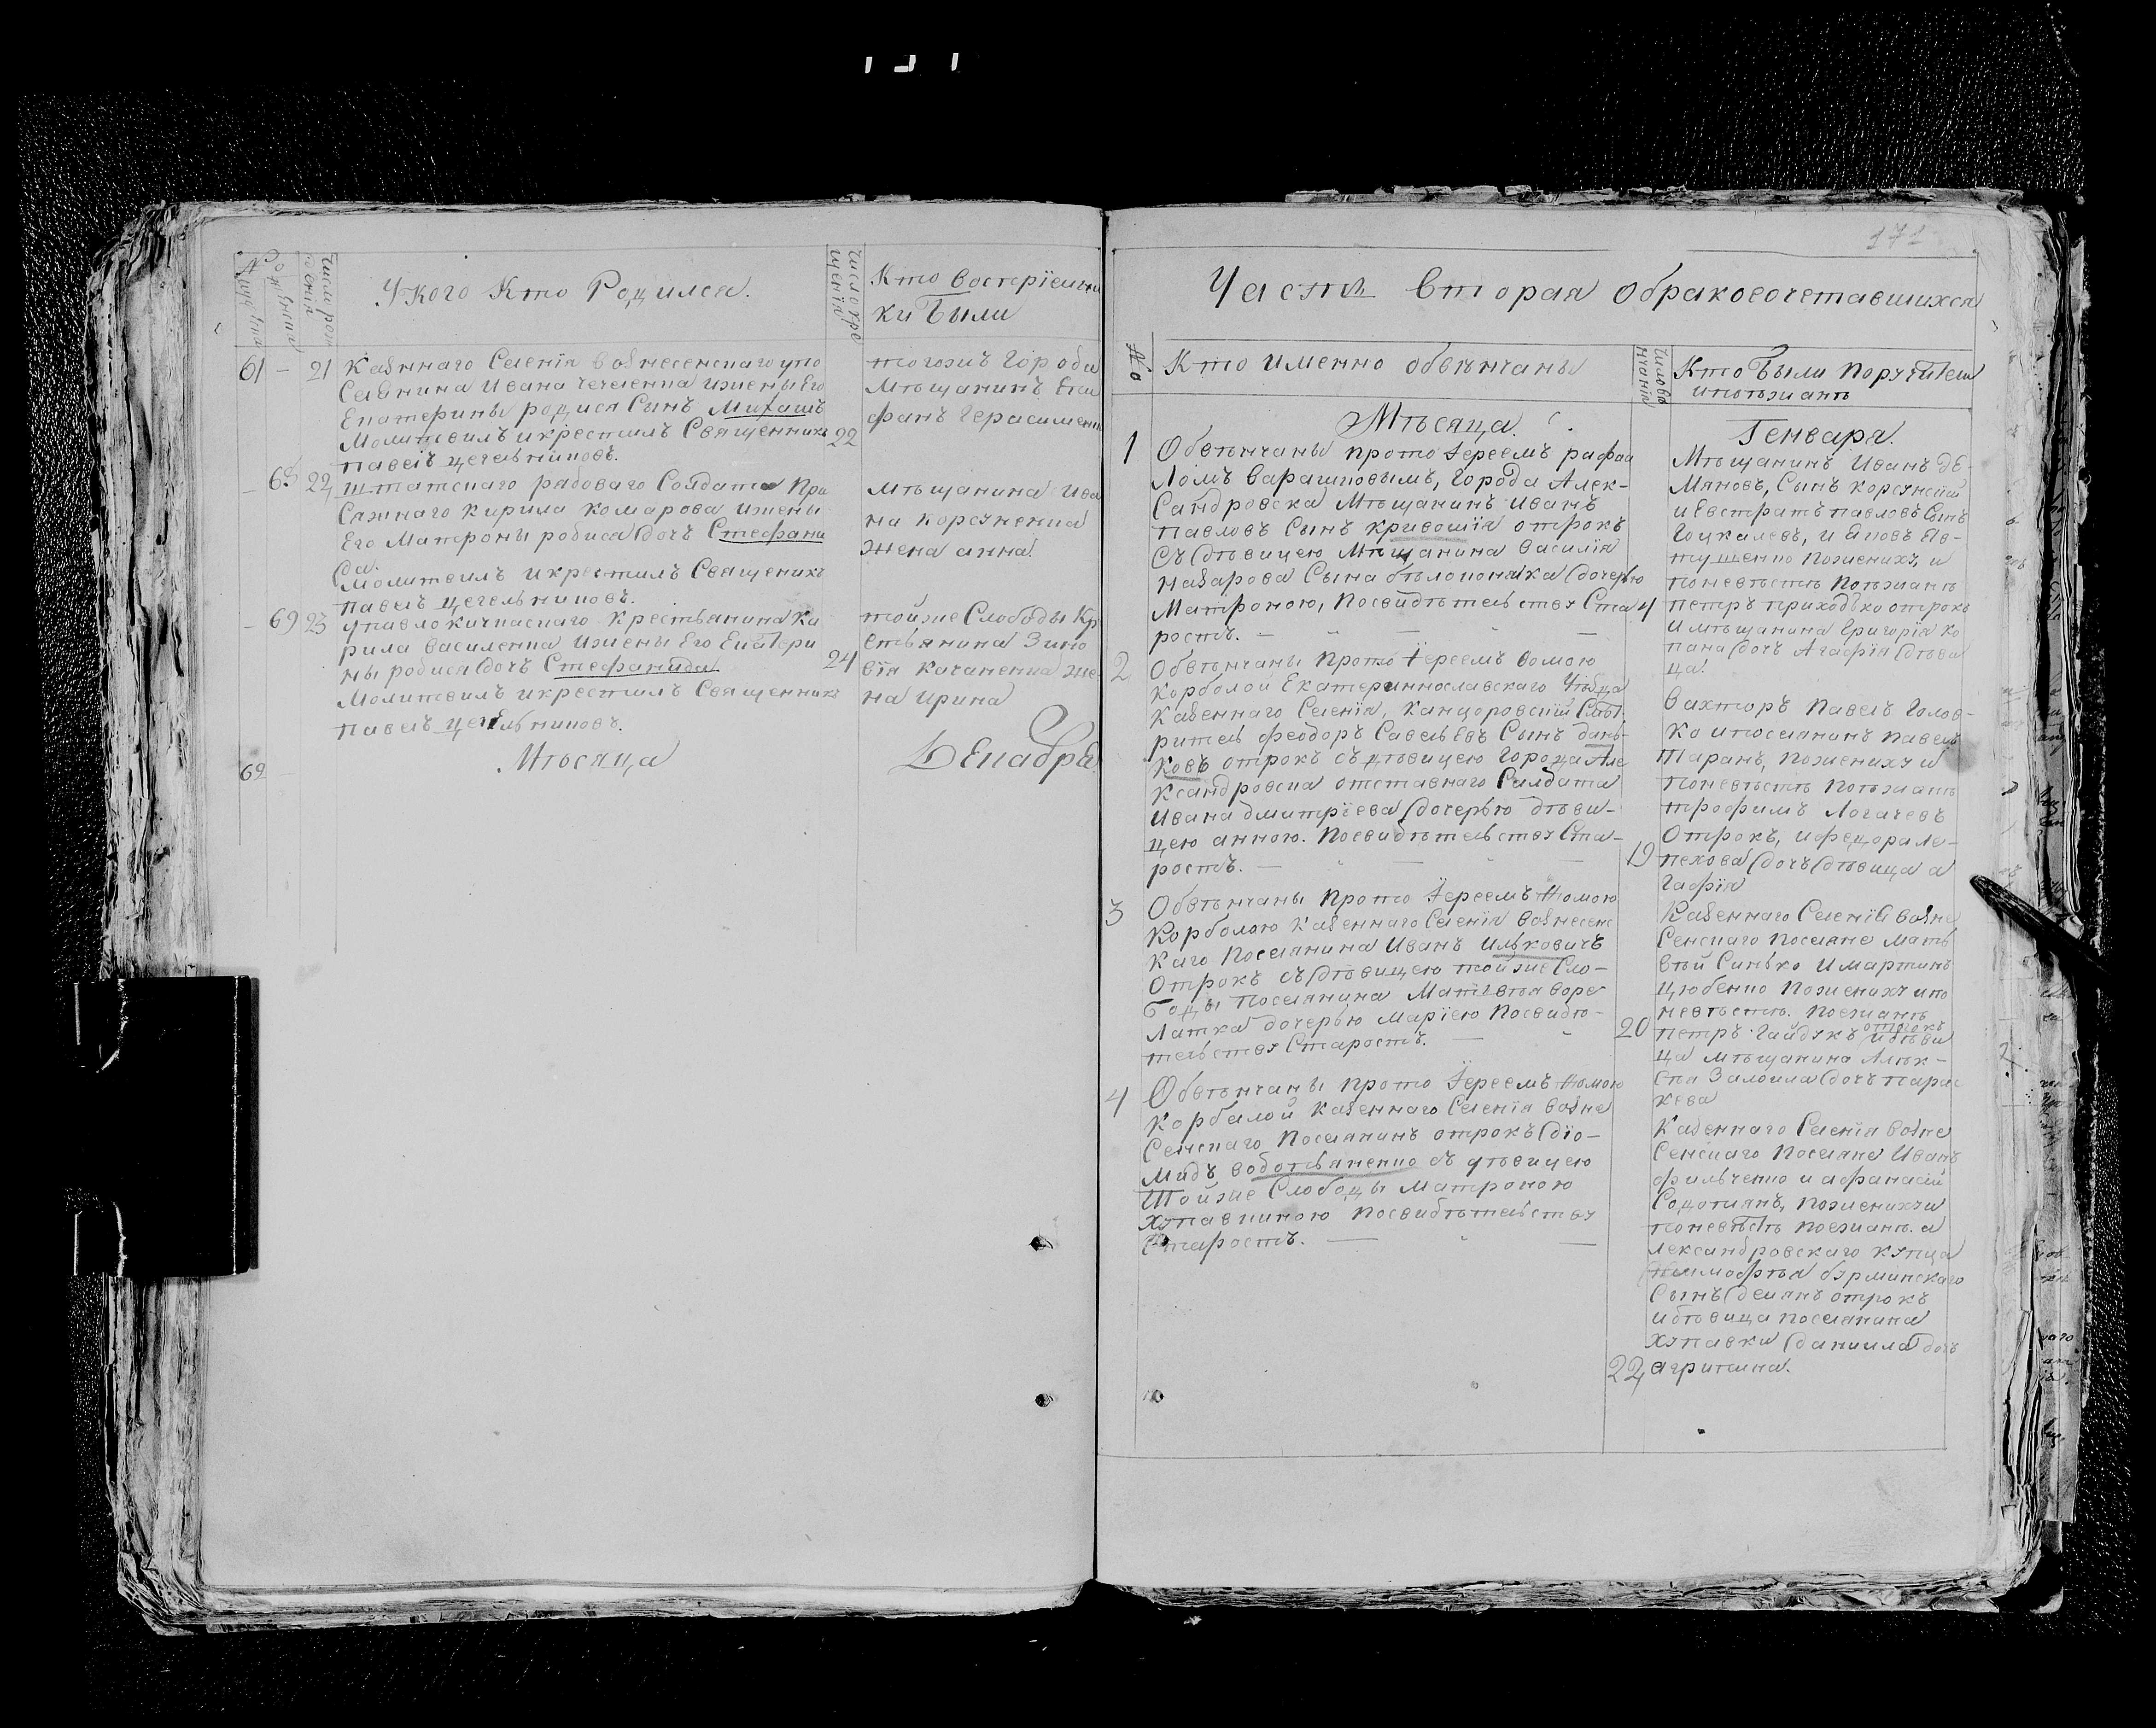 У кого Кто Родился.
Кто восприемни
ки Были
61 — 21 Казеннаго Селенія вознесенскаго упо
Ивана Чечеленка ижены Его
Екатерины родися Синъ Михаилъ
Молитвилъ и крестилъ Священникъ 22
павелъ цегельниковъ.
тогожъ Города
Мѣщанинъ Епи
фанъ Герасименк
68 22 штатскаго рядоваго Солдата При
Сяжнаго Кирила Комарова ижены
Его Матроны родися дочъ Стефани
да.
Молитвилъ и крестилъ Священикъ
павелъ цегельниковъ.
мѣщанина Ива
на Корсуненка
жена анна.
69 23 Крестьянина Ки
рила василенка ижены Его Екатери
ны родися дочъ Стефанида 24
Молитвилъ и крестилъ Священникъ
павелъ цегельниковъ.
тойже Слободы Кр
естьянина Зино
вія Качаненка же
на Ирина
69 Мѣсяца Декабря
171
Часть вторая обракосочетавшихся
№ Кто именно обвѣнчаны
Кто Были Поручители
ипоѣзжанѣ
Мѣсяца Генваря.
1 Обвѣнчаны прото Іереемъ рафаи
ломъ Варашповымъ, Города Алек-
Сандровска Мѣщанинъ Иванъ
павловъ Сынъ кривошія отрокъ
Съ дѣвицею Мѣщанина Василія
назарова Сына бѣлоконика дочерью
Матроною, Посвидѣтельству Ста 4
ростъ.
Мѣщанинъ Иванъ де-
мяновъ, Сынъ Корсунскій
и Евстратъ павловъ Сынъ
Гоцкалевъ, и Яковъ Яв-
тушенко Пожениху, и
поневѣстѣ Поѣзжанѣ
петръ приходько отрокъ
и мѣщанина Григорія Ко
пана дочъ Агафія дѣви
ца.
2 Обвѣнчаны Прото Іереемъ Фомою
Корболой Екатеринославскаго Уѣзда
Казеннаго Селенія, Канцеровскій Смот
ритель феодоръ Савельевъ Сынъ дань-
ковъ отрокъ съ дѣвицею Города Але
ксандровска отставнаго Салдата
Ивана дмитріева дочерью дѣви-
цею анною. Посвидѣтельству Ста-
ростъ. 19
вахторъ Павелъ Голов-
ко ипоселянинъ Павелъ
Таранъ, Пожениху и
Поневѣстѣ Поѣзжанѣ
трофимъ Логачевъ
Отрокъ, ифедора Ле-
пехова дочъ дѣвица а
гафія
3 Обвѣнчаны Прото Іереемъ Фомою
Корболою Казеннаго Селенія Вознесенс
каго Поселянина Иванъ Ильковичъ
Отрокъ съ дѣвицею тойже Сло-
боды Поселянина Матвѣя воре
латка дочерью Маріею Посвидѣ-
тельству Старостъ. 20
Казеннаго Селенія Возне
Сенскаго Поселяне Мать
вѣй Синько И мартинъ
цюбенко Пожениху ипо
невѣстѣ. Поезжанѣ
отрокъ
петръ Гайдукъ идѣви
ца мѣщанина Алѣк-
сѣя Залоила дочъ парас
кева
4 Обвѣнчаны Прото Іереемъ Фомою
Корболой Казеннаго Селенія Возне
Сенскаго Поселянинъ отрокъ діо-
мидъ водотьяненко съ дѣвицею
Тойже Слободы Матроною
Хупавкиною Посвидѣтельству
Старостъ.
Казеннаго Селенія Возне
Сенскаго Поселяне Иванъ
фильченко и афанасій
Содотянъ, Поженихуи
поневѣстѣ Поезжанѣ. а
лександровскаго купца
Тимофѣя бурминскаго
Сынъ демянъ отрокъ
идѣвица поселянина
Хупавки даниила дочъ
22 агрипина.